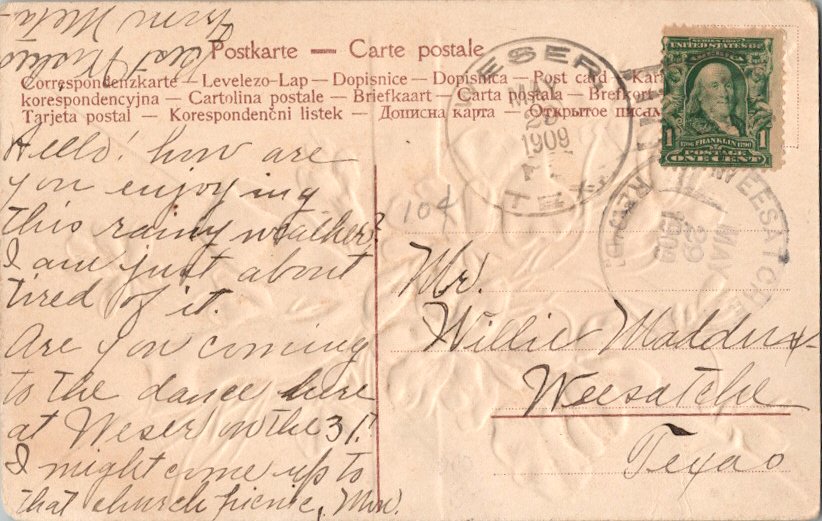 Postkarte — Carte postale
Correspondenzkarte — Levelezo-Lap — Dopisnice — Dopisnica — Post card — Kar
korespondencyjna — Cartolina postale — Briefkaart — Carta postala — Brefkor
Tarjeta postal — Korespondenčni listek — Дописна карта — Открытое писм
WESER,
MAY
1909
TEX.
SERIES 1902
UNITED STATES OF
1
1706 FRANKLIN 1790
1
POSTAGE
ONE CENT
WEESATCHE
MAY
29
1909
REC'D.
10¢
Hello! how are
you enjoying
this rainy weather?
I am just about
tired of it.
Are you coming
to the dance here
at Weser on the 31?
I might come up to
that church picnic,
Best Wishes
from Meta
Mr.
Willie Maddux
Weesatche
Texas